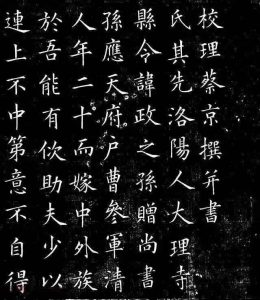 校理蔡京撰并書
氏其先洛陽人大理寺
縣令諱政之孫贈尚書
孫應天府户曹叅軍清
人年二十而嫁中外族
於吾能有佽助夫少以
連上不中第意不自得